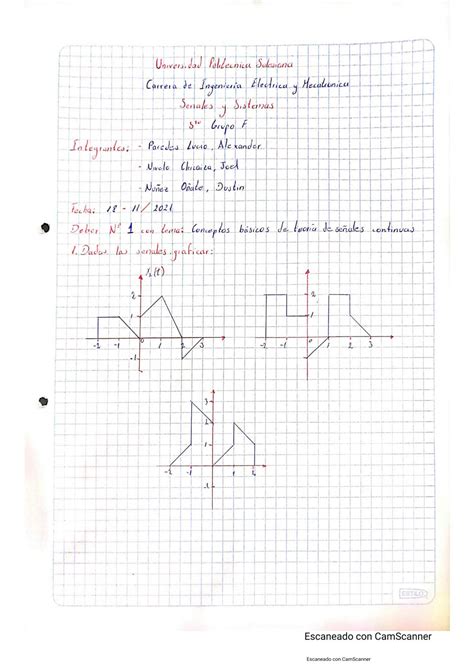 Universidad Politécnica Salesiana
Carrera de Ingeniería Eléctrica y Mecatrónica
Señales y Sistemas
5to Grupo F
Integrantes: - Paredes Lucio, Alexander
- Chicaiza, Joel
- Nuñez Oñate, Dustin
Fecha: 18 - 11 / 2021
Deber N° 1 con tema: Conceptos básicos de teoría de señales continuas
1. Dadas las señales graficar:
(t)
2
1
-2 -1 0 1 2 3
-1
2
1
-2 -1 0 1 2 3
-1
3
2
1
-2 -1 0 1 2
-1
ESTILO
Escaneado con CamScanner
Escaneado con CamScanner